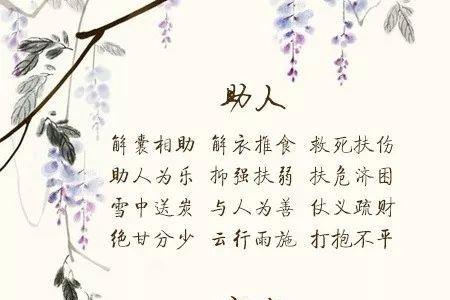 助人
解囊相助 解衣推食 救死扶伤
助人为乐 抑强扶弱 扶危济困
雪中送炭 与人为善 仗义疏财
绝甘分少 云行雨施 打抱不平